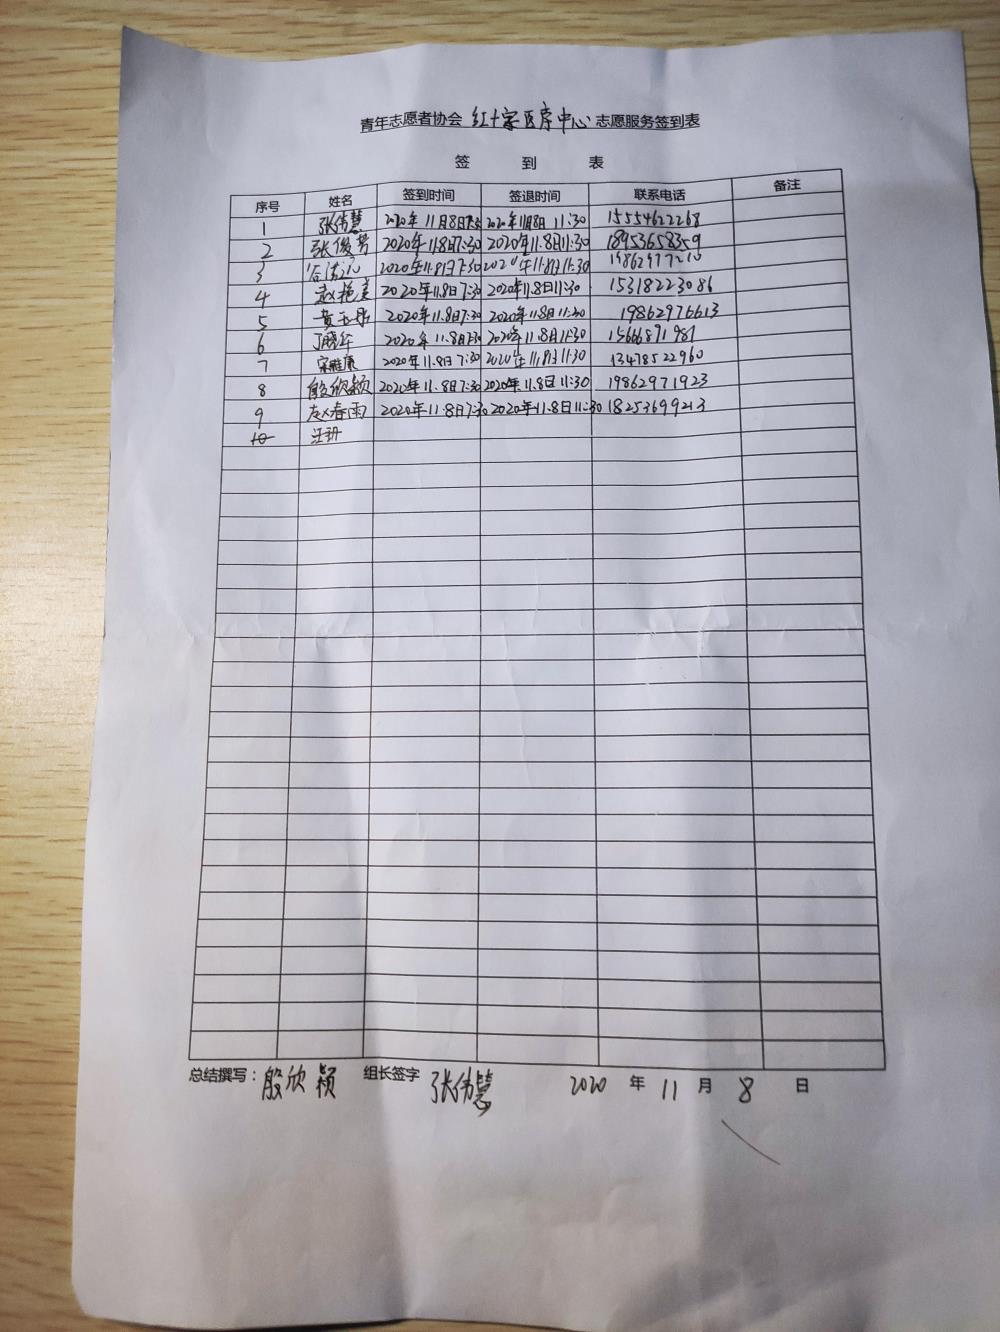 青年志愿者协会 红十字医疗中心 志愿服务签到表
签 到 表
序号 姓名 签到时间 签退时间 联系电话 备注
1 张伟慧 2020年11月8日 2020年11月8日 11:30 15554622268
2 张俊芳 2020年11.8日7:30 2020年11.8日11:30 18953658359
3 2020年11.8日7:30 2020年11.8日11:30
4 赵艳美 2020年11.8日7:30 2020年11.8日11:30 15318223086
5 黄玉 2020年11.8日7:30 2020年11.8日11:30 19862976613
6 丁晓华 2020年11.8日7:30 2020年11.8日11:30
7 宋胜康 2020年11.8日7:30 2020年11.8日11:30 13478522960
8 殷欣颖 2020年11.8日7:30 2020年11.8日11:30 19862971923
9 赵春雨 2020年11.8日7:30 2020年11.8日11:30 18253699213
10 汪玥
总结撰写:殷欣颖 组长签字 张伟慧 2020 年 11 月 8 日